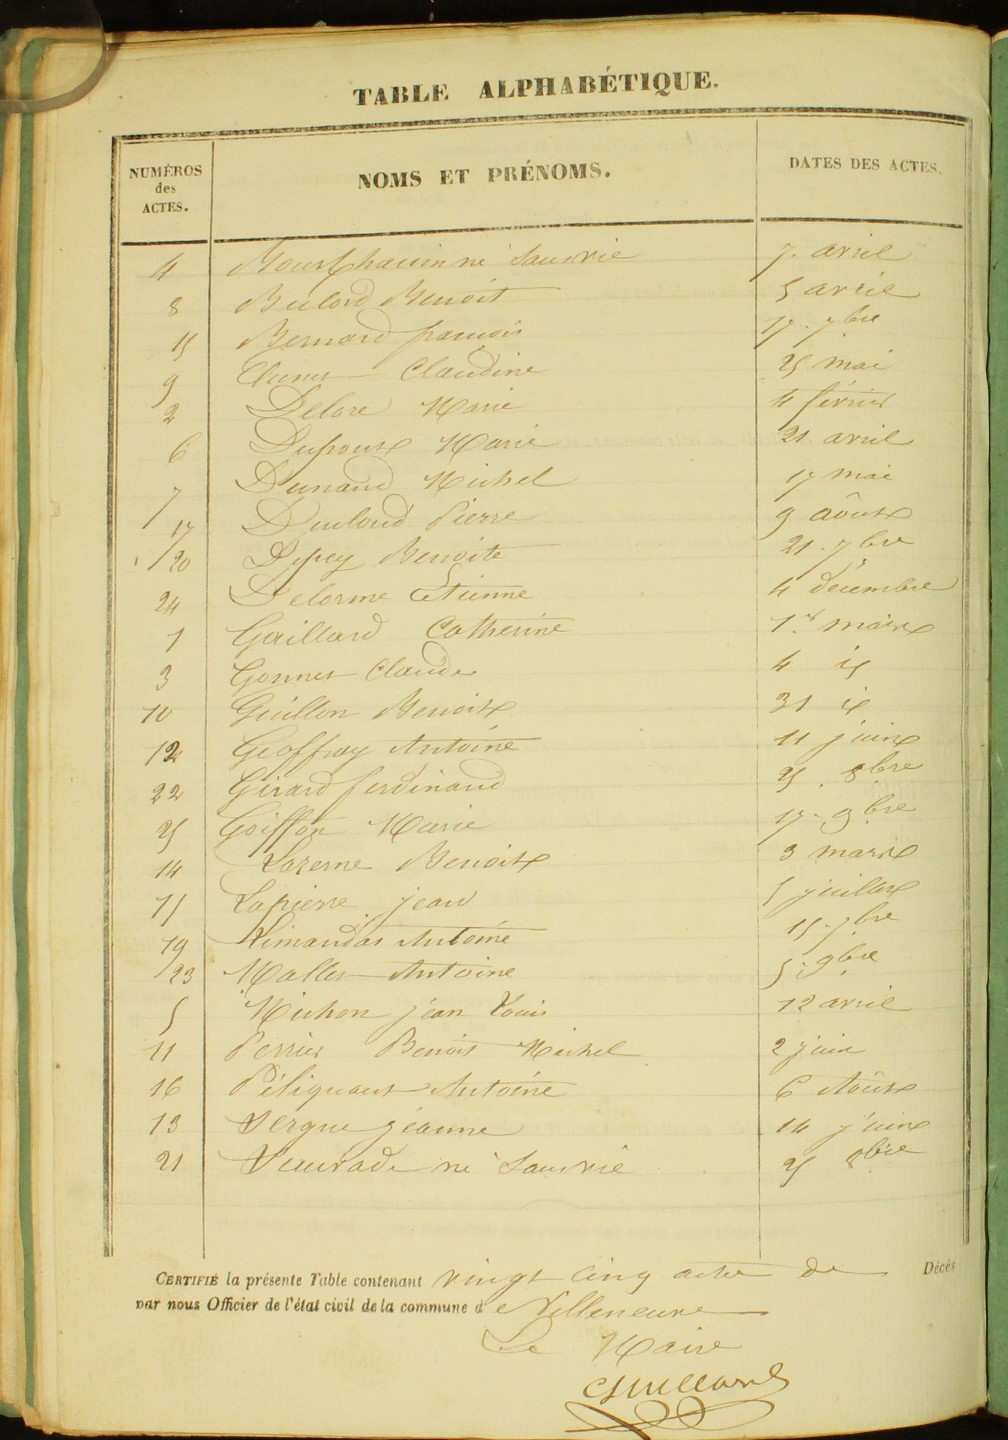 TABLE ALPHABÉTIQUE.
NUMÉROS des ACTES. NOMS ET PRÉNOMS. DATES DES ACTES.
4 né sans vie 7 avril
8 Benoit 5 avril
15 Bernard françois 17 7bre
9 Claudine 25 mai
2 Delore Marie 4 février
6 Marie 21 avril
7 Dunand Michel 17 mai
17 Pierre 9 Aôust
20 Benoite 21 7bre
24 Delorme Etienne 4 décembre
1 Gaillard Catherine 1er mars
3 Gonnet Claude 4 id
10 Guillon Benoit 31 id
12 Geoffray Antoine 11 juin
22 Girard ferdinand 25 8bre
25 Goiffon Marie 17 9bre
14 Benoit 3 mars
11 Lapierre jean 5 juillet
19 Limandas Antoine 15 7bre
23 Mallet Antoine 5 9bre
5 Michon jéan Louis 12 avril
11 Perrier Benoit Michel 2 juin
16 Antoine 6 Aôust
13 Vergne jéanne 14 juin
21 né sans vie 25 8bre
CERTIFIÉ la présente Table contenant vingt cinq actes de Décès
par nous Officier de l'état civil de la commune de Villeneuve
Le Maire